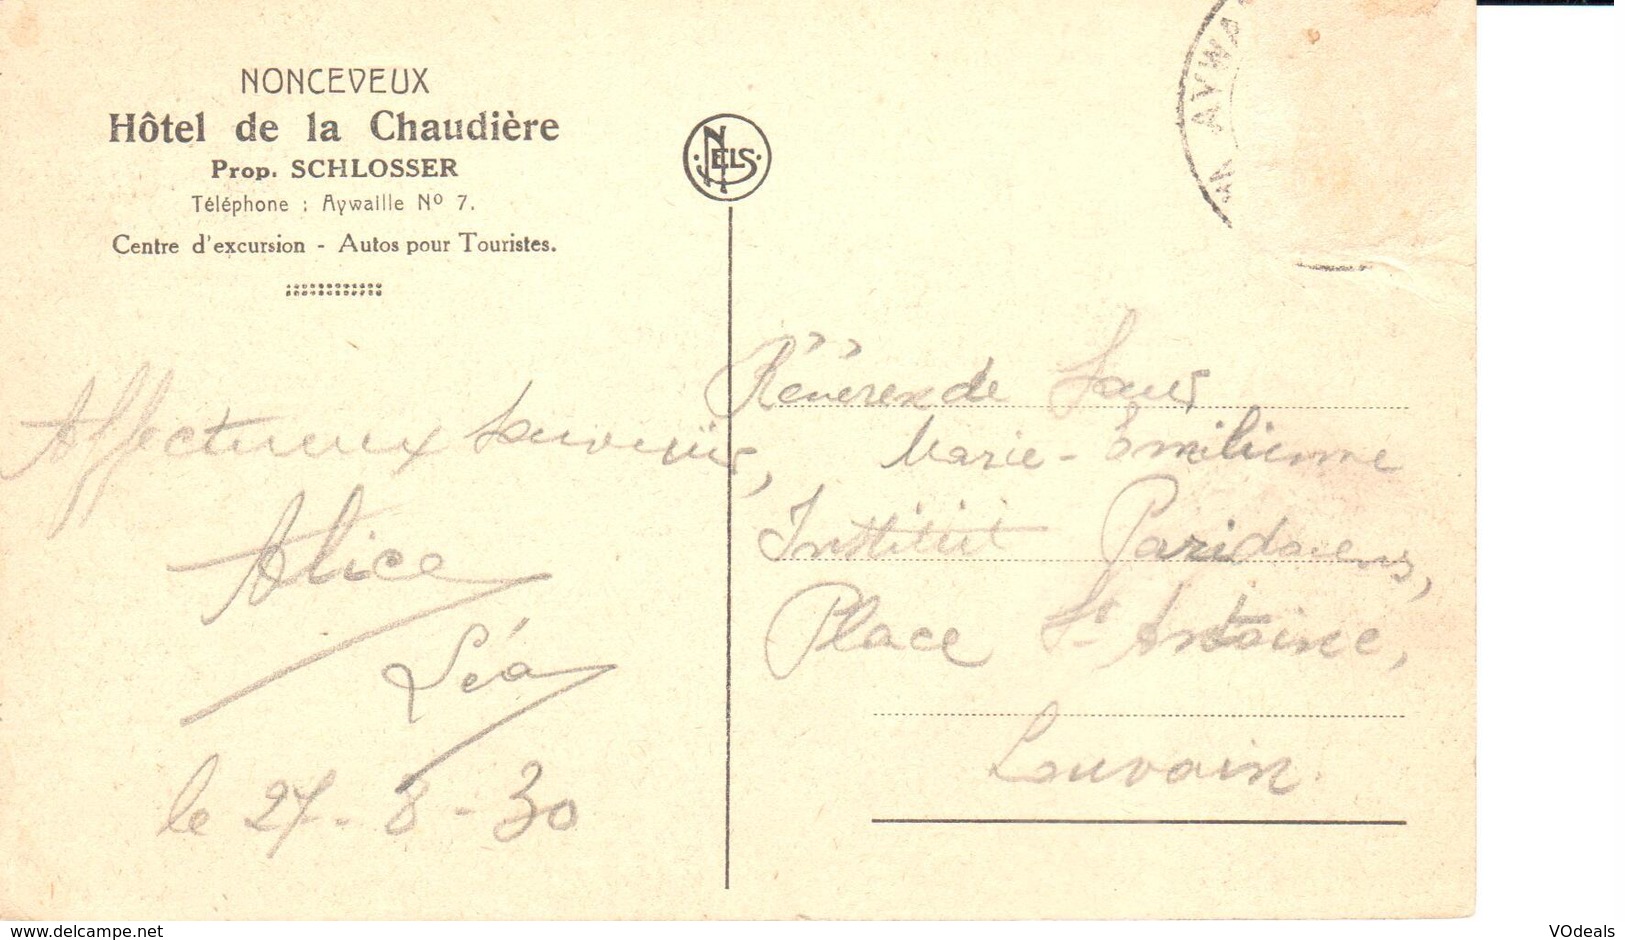 NONCEVEUX
Hôtel de la Chaudière
Prop. SCHLOSSER
Téléphone : Aywaille Nº 7.
Centre d'excursion - Autos pour Touristes.
NELS
AYWA
Affectueux souvenirs,
Alice
Léa
le 27-8-30
Révérende Sœur
Marie-Emilienne
Institut Paridaens,
Place St Antoine,
Louvain
delcampe.net
VOdeals